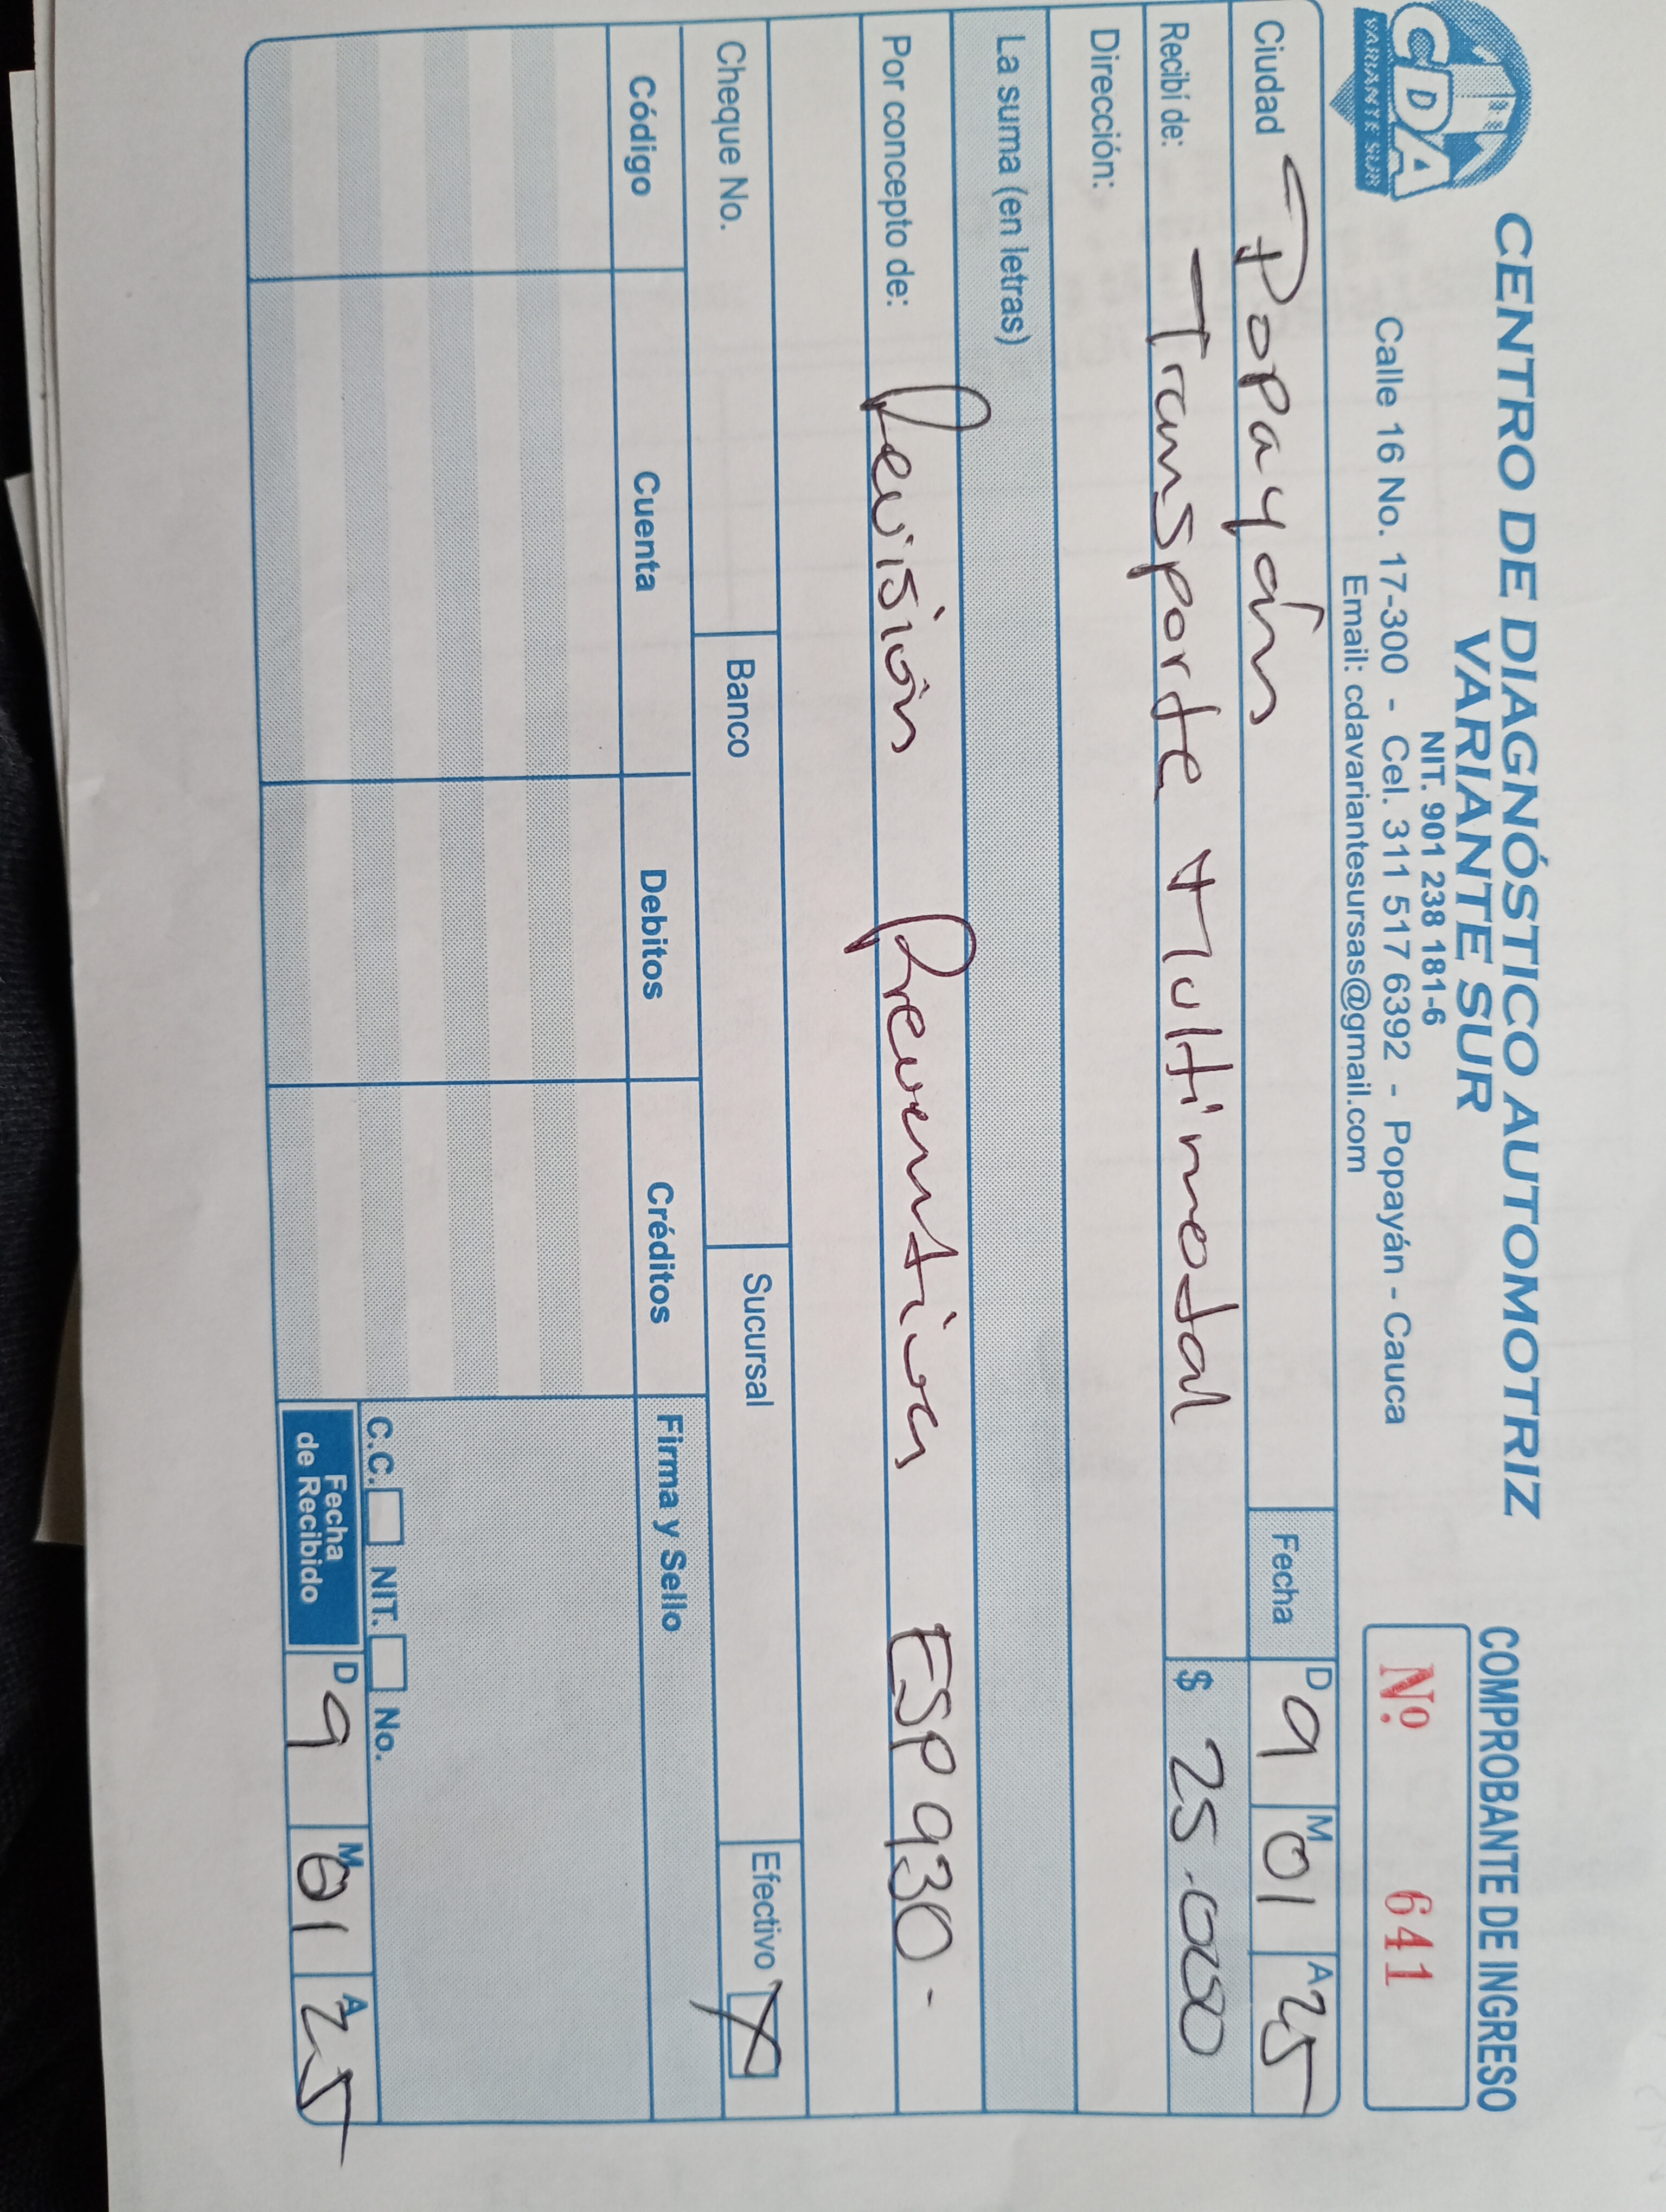 CDA
VARIANTE SUR
CENTRO DE DIAGNÓSTICO AUTOMOTRIZ
VARIANTE SUR
NIT. 901 238 181-6
Calle 16 No. 17-300 - Cel. 311 517 6392 - Popayán - Cauca
Email: cdavariantesursas@gmail.com
COMPROBANTE DE INGRESO
Nº. 641
Ciudad Popayán Fecha D 9 M 01 A 25
Recibí de: Transporte Multimodal $ 25.000
Dirección:
La suma (en letras)
Por concepto de: Revisión Preventiva ESP 930.
Cheque No. Banco Sucursal Efectivo X
Código Cuenta Debitos Créditos Firma y Sello
C.C. NIT. No.
Fecha de Recibido D 9 M 01 A 25